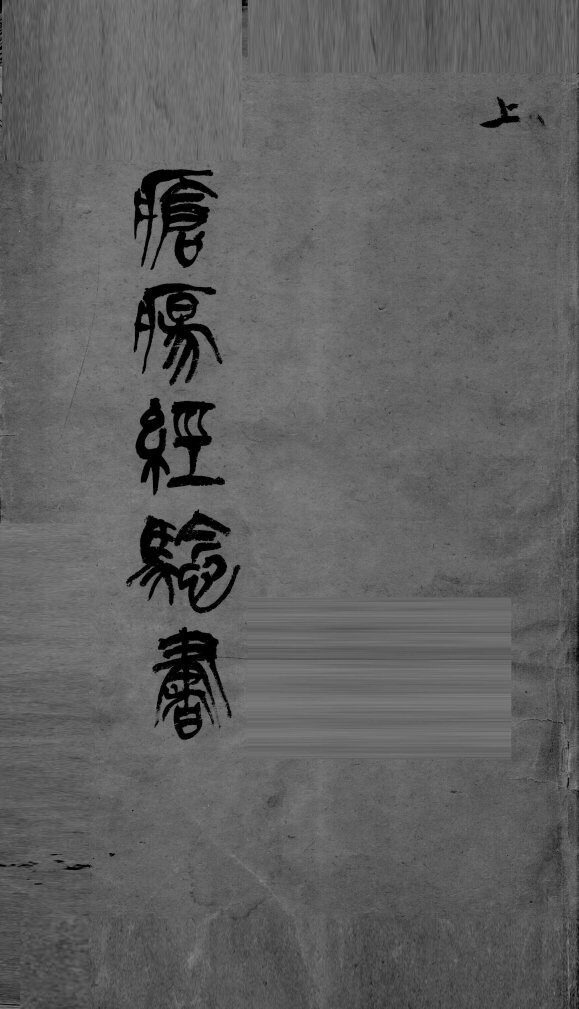 上
瘡瘍經驗書